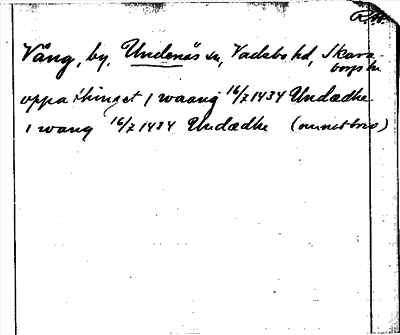 R.W.
Vång, by, Undenäs sn, Vadsbo hd, Skara-
borgs län
oppa thinget i waang 16/7 1434 Undædhe
i wang 16/7 1434 Undædhe (omnet brev)